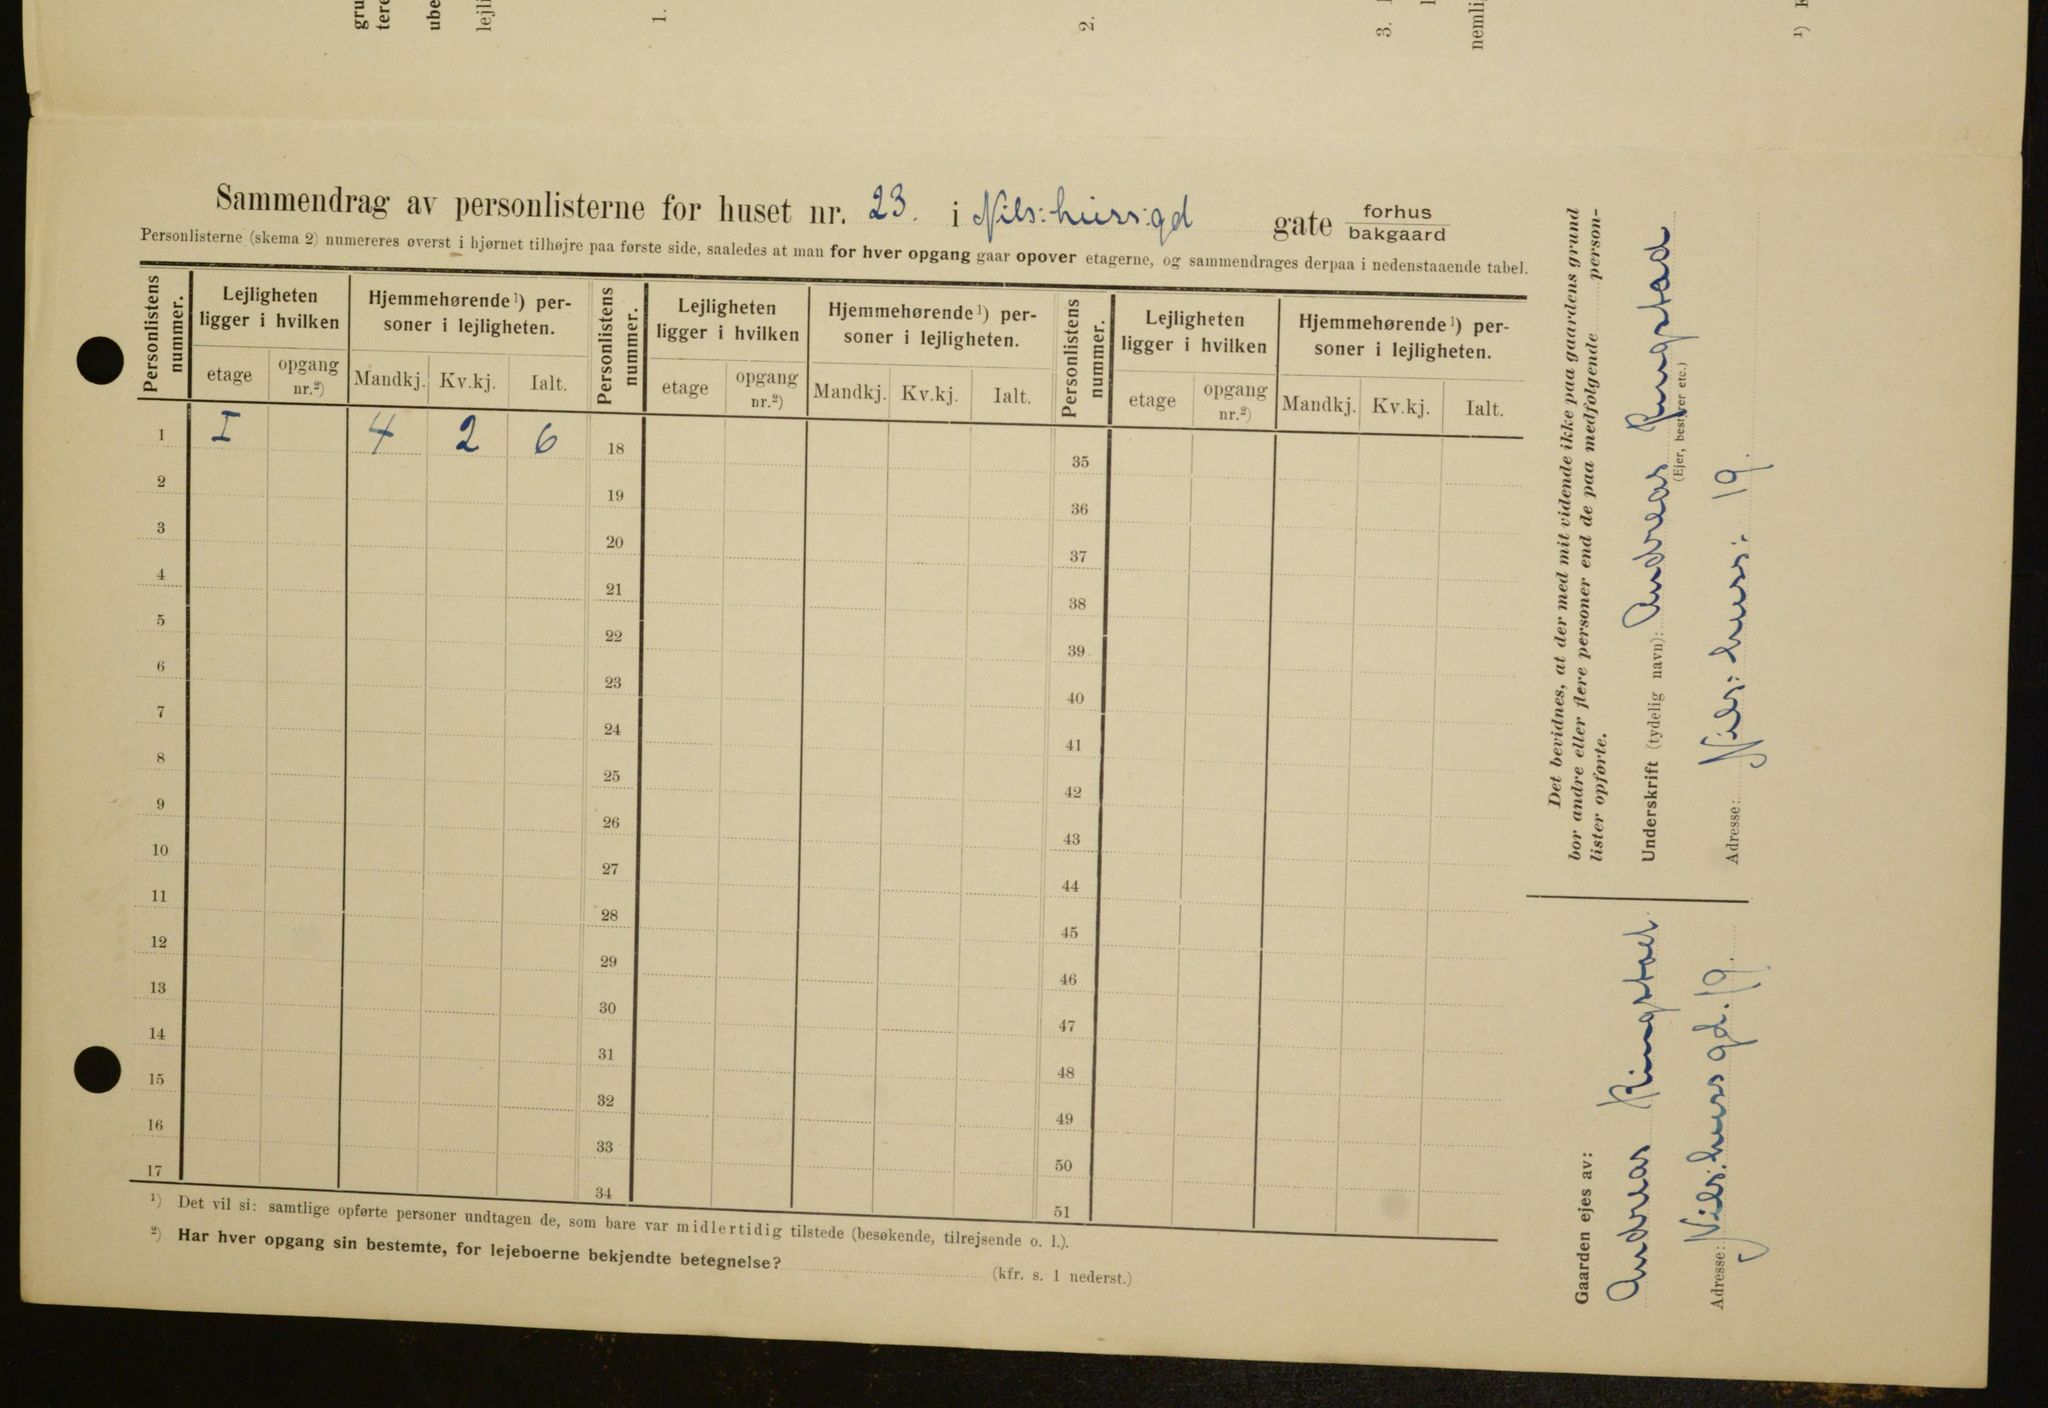 Sammendrag av personlisterne for huset nr. 23. i Nils:huss:gd gate forhus
bakgaard
Personlisterne (skema 2) numereres øverst i hjørnet tilhøjre paa første side, saaledes at man for hver opgang gaar opover etagerne, og sammendrages derpaa i nedenstaaende tabel.
Personlistens nummer.
Lejligheten ligger i hvilken
Hjemmehørende ¹) per-
soner i lejligheten.
etage
opgang nr.²)
Mandkj.
Kv.kj.
Ialt.
Personlistens nummer.
Lejligheten ligger i hvilken
Hjemmehørende ¹) per-
soner i lejligheten.
etage
opgang nr.²)
Mandkj.
Kv.kj.
Ialt.
Personlistens nummer.
Lejligheten ligger i hvilken
Hjemmehørende ¹) per-
soner i lejligheten.
etage
opgang nr.²)
Mandkj.
Kv.kj.
Ialt.
1 I 4 2 6 18 35
2 19 36
3 20 37
4 21 38
5 22 39
6 23 40
7 24 41
8 25 42
9 26 43
10 27 44
11 28 45
12 29 46
13 30 47
14 31 48
15 32 49
16 33 50
17 34 51
¹) Det vil si: samtlige opførte personer undtagen de, som bare var midlertidig tilstede (besøkende, tilrejsende o. l.).
²) Har hver opgang sin bestemte, for lejeboerne bekjendte betegnelse? (kfr. s. 1 nederst.)
Det bevidnes, at der med mit vidende ikke paa gaardens grund
bor andre eller flere personer end de paa medfølgende person-
lister opførte.
Underskrift (tydelig navn): Andreas Ringstad
(Ejer, bestyrer etc.)
Adresse: Nils: huss: 19.
Gaarden ejes av:
Andreas Ringstad
Adresse: Nils:huss gd. 19.
1.
2.
3.
nemli